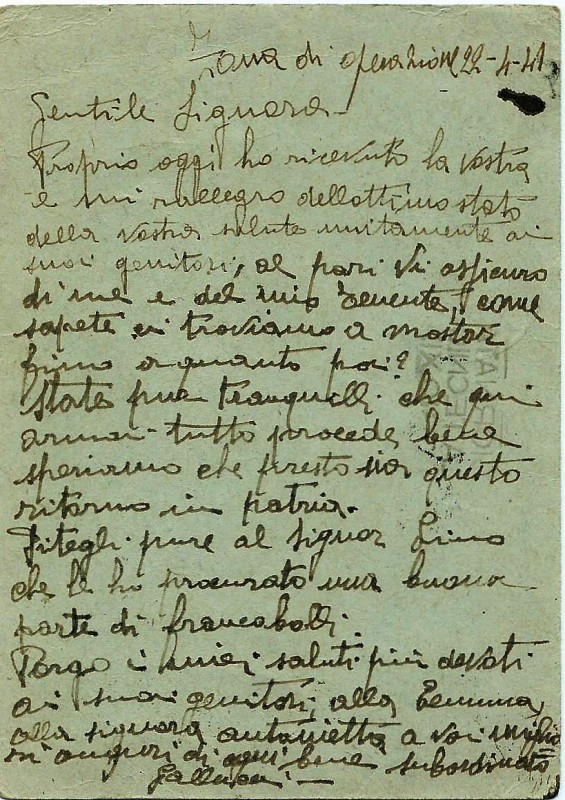 Zona di operazione 22-4-41
Gentile Signora-
Proprio oggi ho ricevuto la vostra
e mi rallegro dellottimo stato
della vostra salute unitamente ai
suoi genitori, al pari vi assicuro
di me e del mio Tenente, come
sapete ci troviamo a mostar
fino a quanto poi?
State pure tranquilli che qui
armai tutto procede bene
speriamo che presto sia questo
ritorno in patria.
Ditegli pure al signor Lino
che le ho procurato una buona
parte di francobolli.
Porgo i miei saluti più devoti
ai suoi genitori, alla
alla signora antonietta a voi miglio
ri auguri di ogni bene subordinato